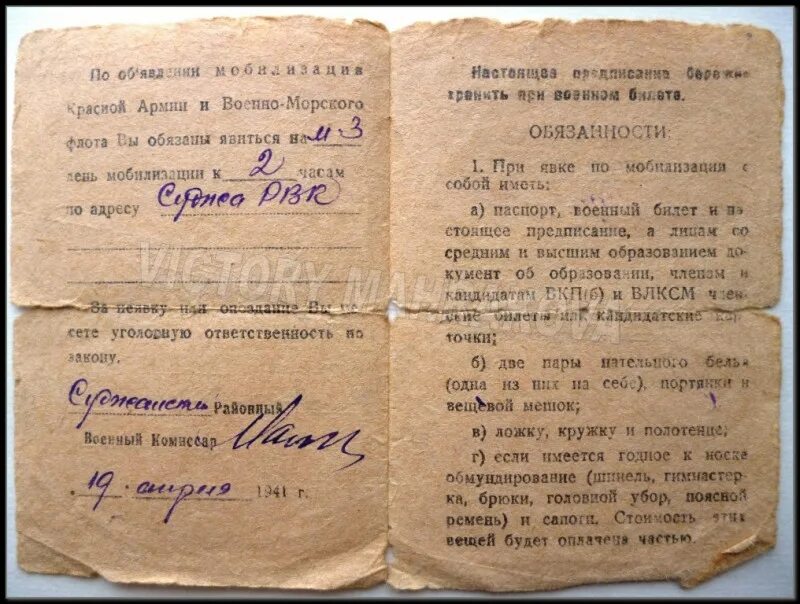 По об'явлении мобилизации
Красной Армии и Военно-Морского
флота Вы обязаны явиться на м-3
день мобилизации к 2 часам
по адресу Суджа РВК
За неявку или опоздание Вы не-
сете уголовную ответственность по
закону.
Суджанский Районный
Военный Комиссар
19 апреля 1941 г.
Настоящее предписание бережно
хранить при военном билете.
ОБЯЗАННОСТИ:
1. При явке по мобилизации с
собой иметь:
а) паспорт, военный билет и на
стоящее предписание, а лицам со
средним и высшим образованием до
кумент об образовании, членам и
кандидатам ВКП(б) и ВЛКСМ член
ские билеты или кандидатские кар
точки;
б) две пары нательного белья
(одна из них на себе), портянки и
вещевой мешок;
в) ложку, кружку и полотенце;
г) если имеется годное к носке
обмундирование (шинель, гимнастер-
ка, брюки, головной убор, поясной
ремень) и сапоги. Стоимость этих
вещей будет оплачена частью.
VICTORY